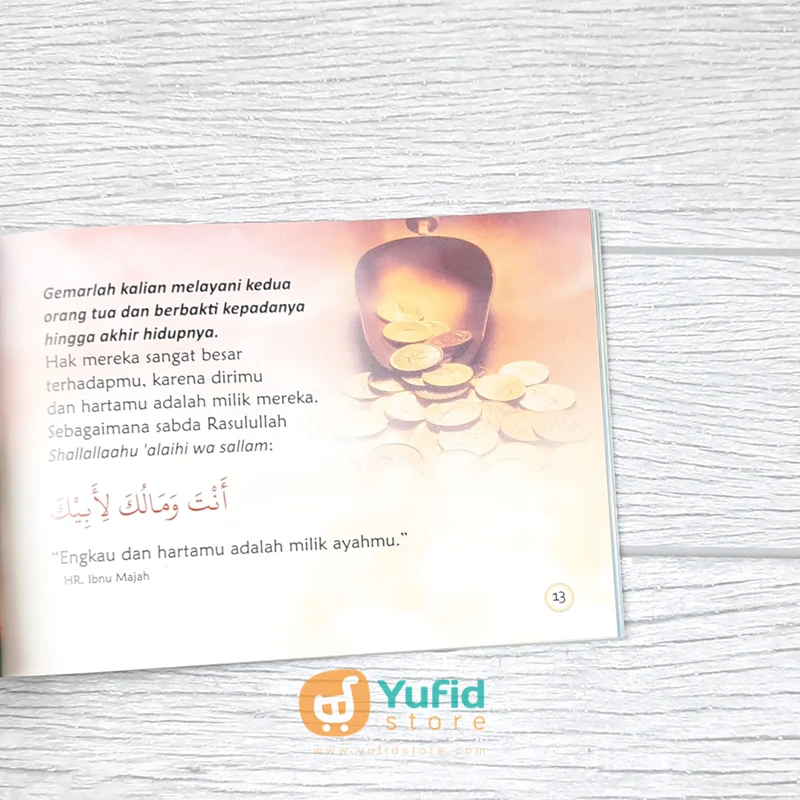 Gemarlah kalian melayani kedua
orang tua dan berbakti kepadanya
hingga akhir hidupnya.
Hak mereka sangat besar
terhadapmu, karena dirimu
dan hartamu adalah milik mereka.
Sebagaimana sabda Rasulullah
Shallallaahu 'alaihi wa sallam:
أَنْتَ وَمَالُكَ لِأَبِيْكَ
“Engkau dan hartamu adalah milik ayahmu.”
HR. Ibnu Majah
13
Yufid
store
www.yufidstore.com